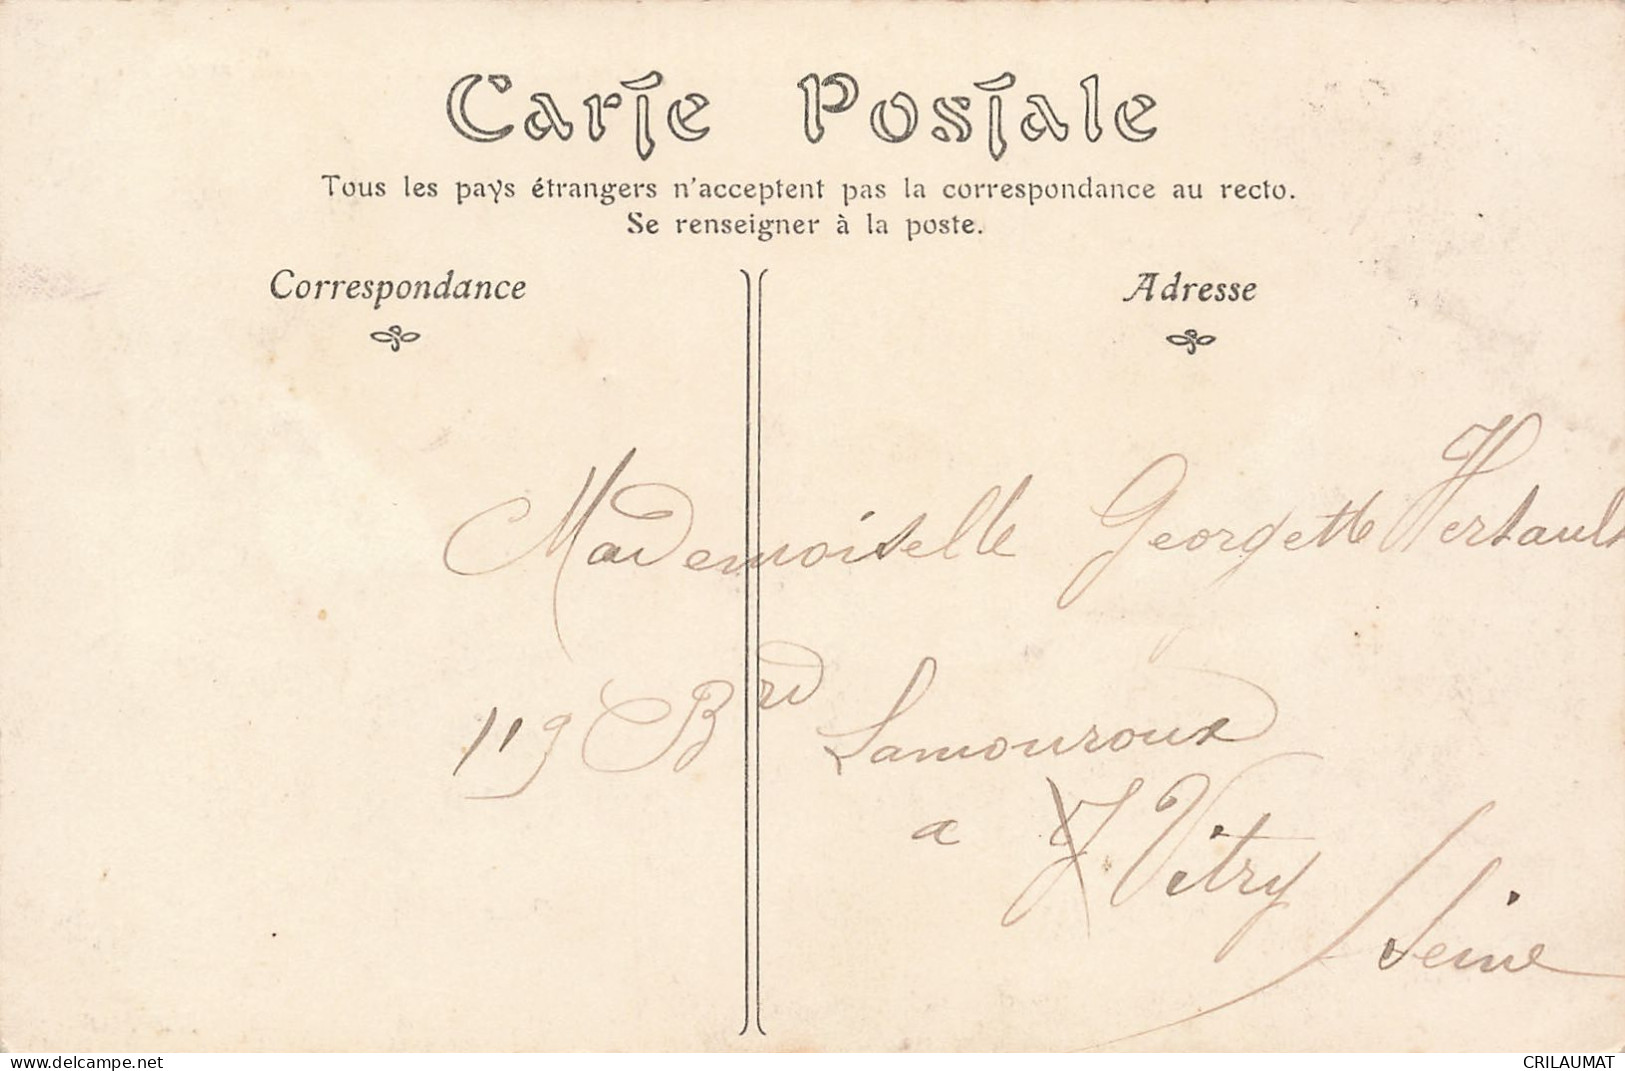 Carte Postale
Tous les pays étrangers n'acceptent pas la correspondance au recto.
Se renseigner à la poste.
Correspondance
Adresse
Mademoiselle Georgette Hersault
119 Brd Lamouroux
a Vitry
Seine
www.delcampe.net
CRILAUMAT